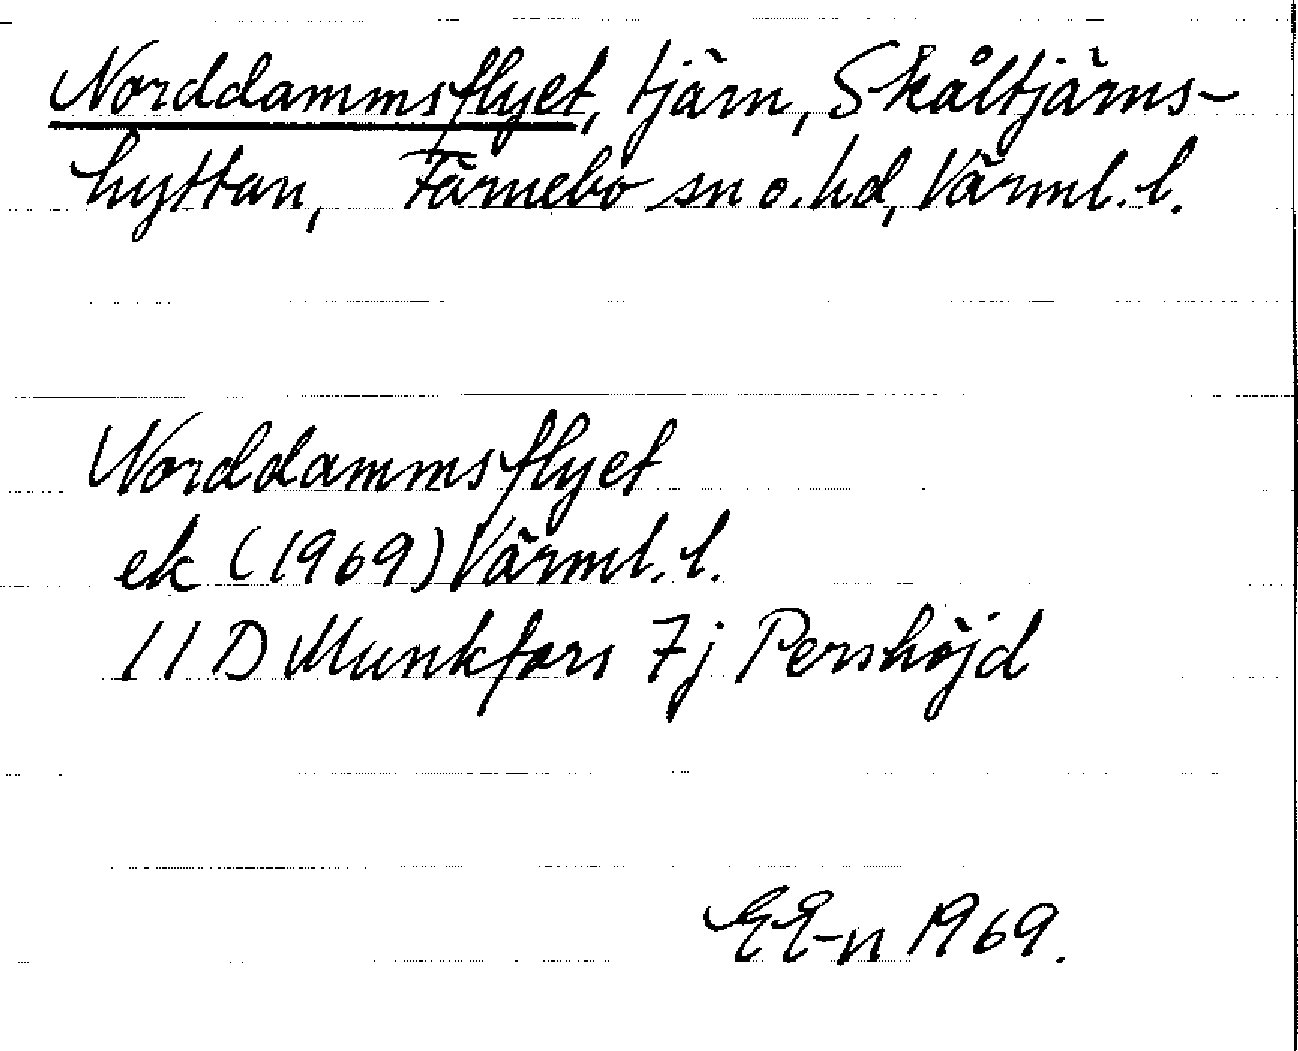 Norddammsflyet, tjärn, Skåltjärns-
hyttan, Färnebo sn o. hd, Värml. l.
Norddammsflyet
ek (1969) Värml. l.
11 D Munkfors 7j Pershöjd
EE-n 1969.